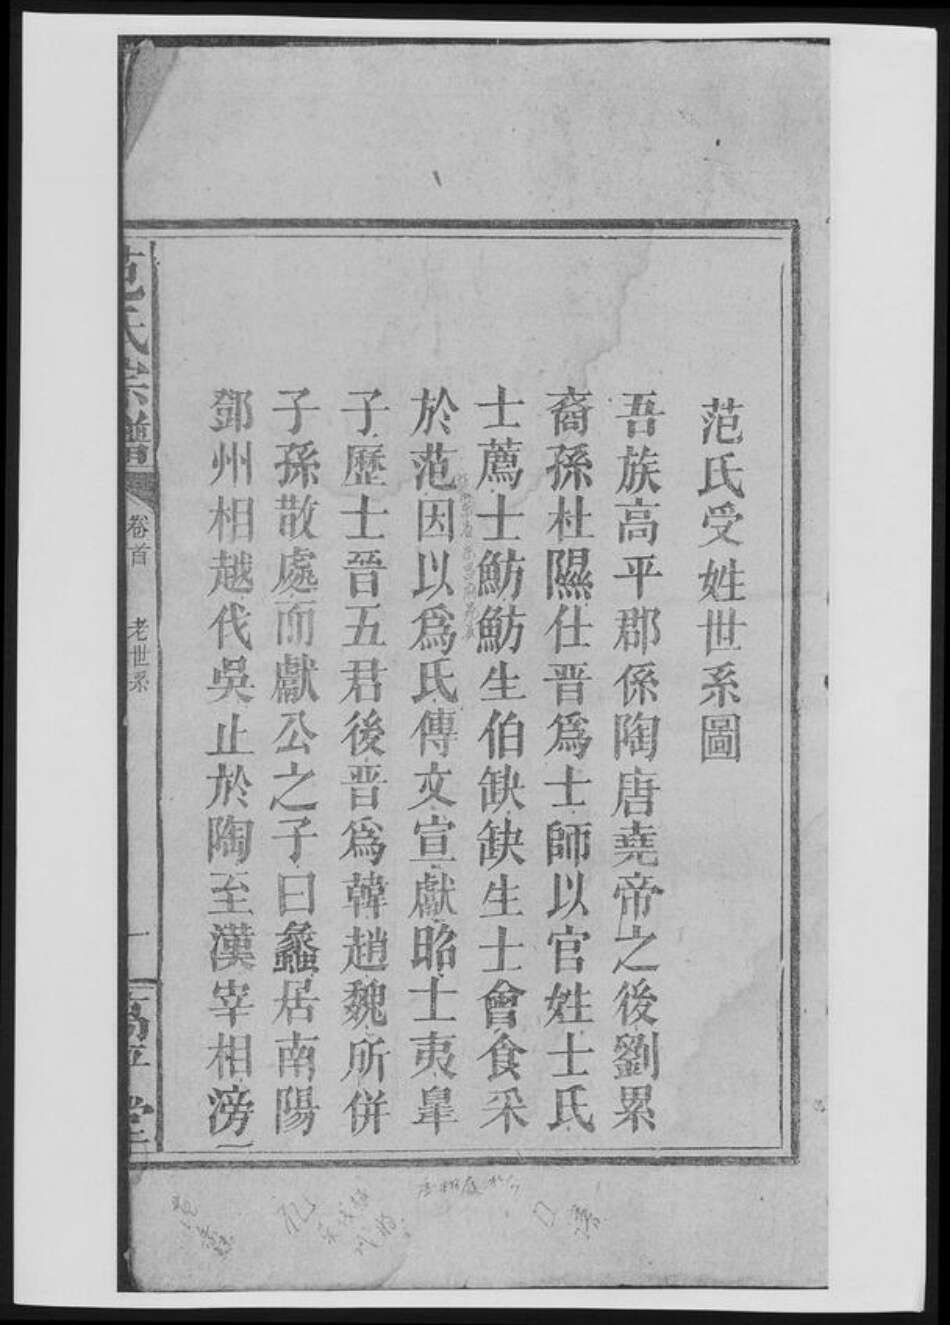 范氏受姓世系圖
吾族高平郡係陶唐堯帝之後劉累
裔孫杜隰仕晋爲士師以官姓士氏
士蔿士魴魴生伯缺缺生士會食采
於范因以爲氏傳文宣獻昭士夷皐
子歷士晉五君後晋爲韓趙魏所併
子孫散處而獻公之子曰蠡居南陽
鄧州相越伐吳止於陶至漢宰相滂
范氏宗譜
卷首
老世系
一
高平堂